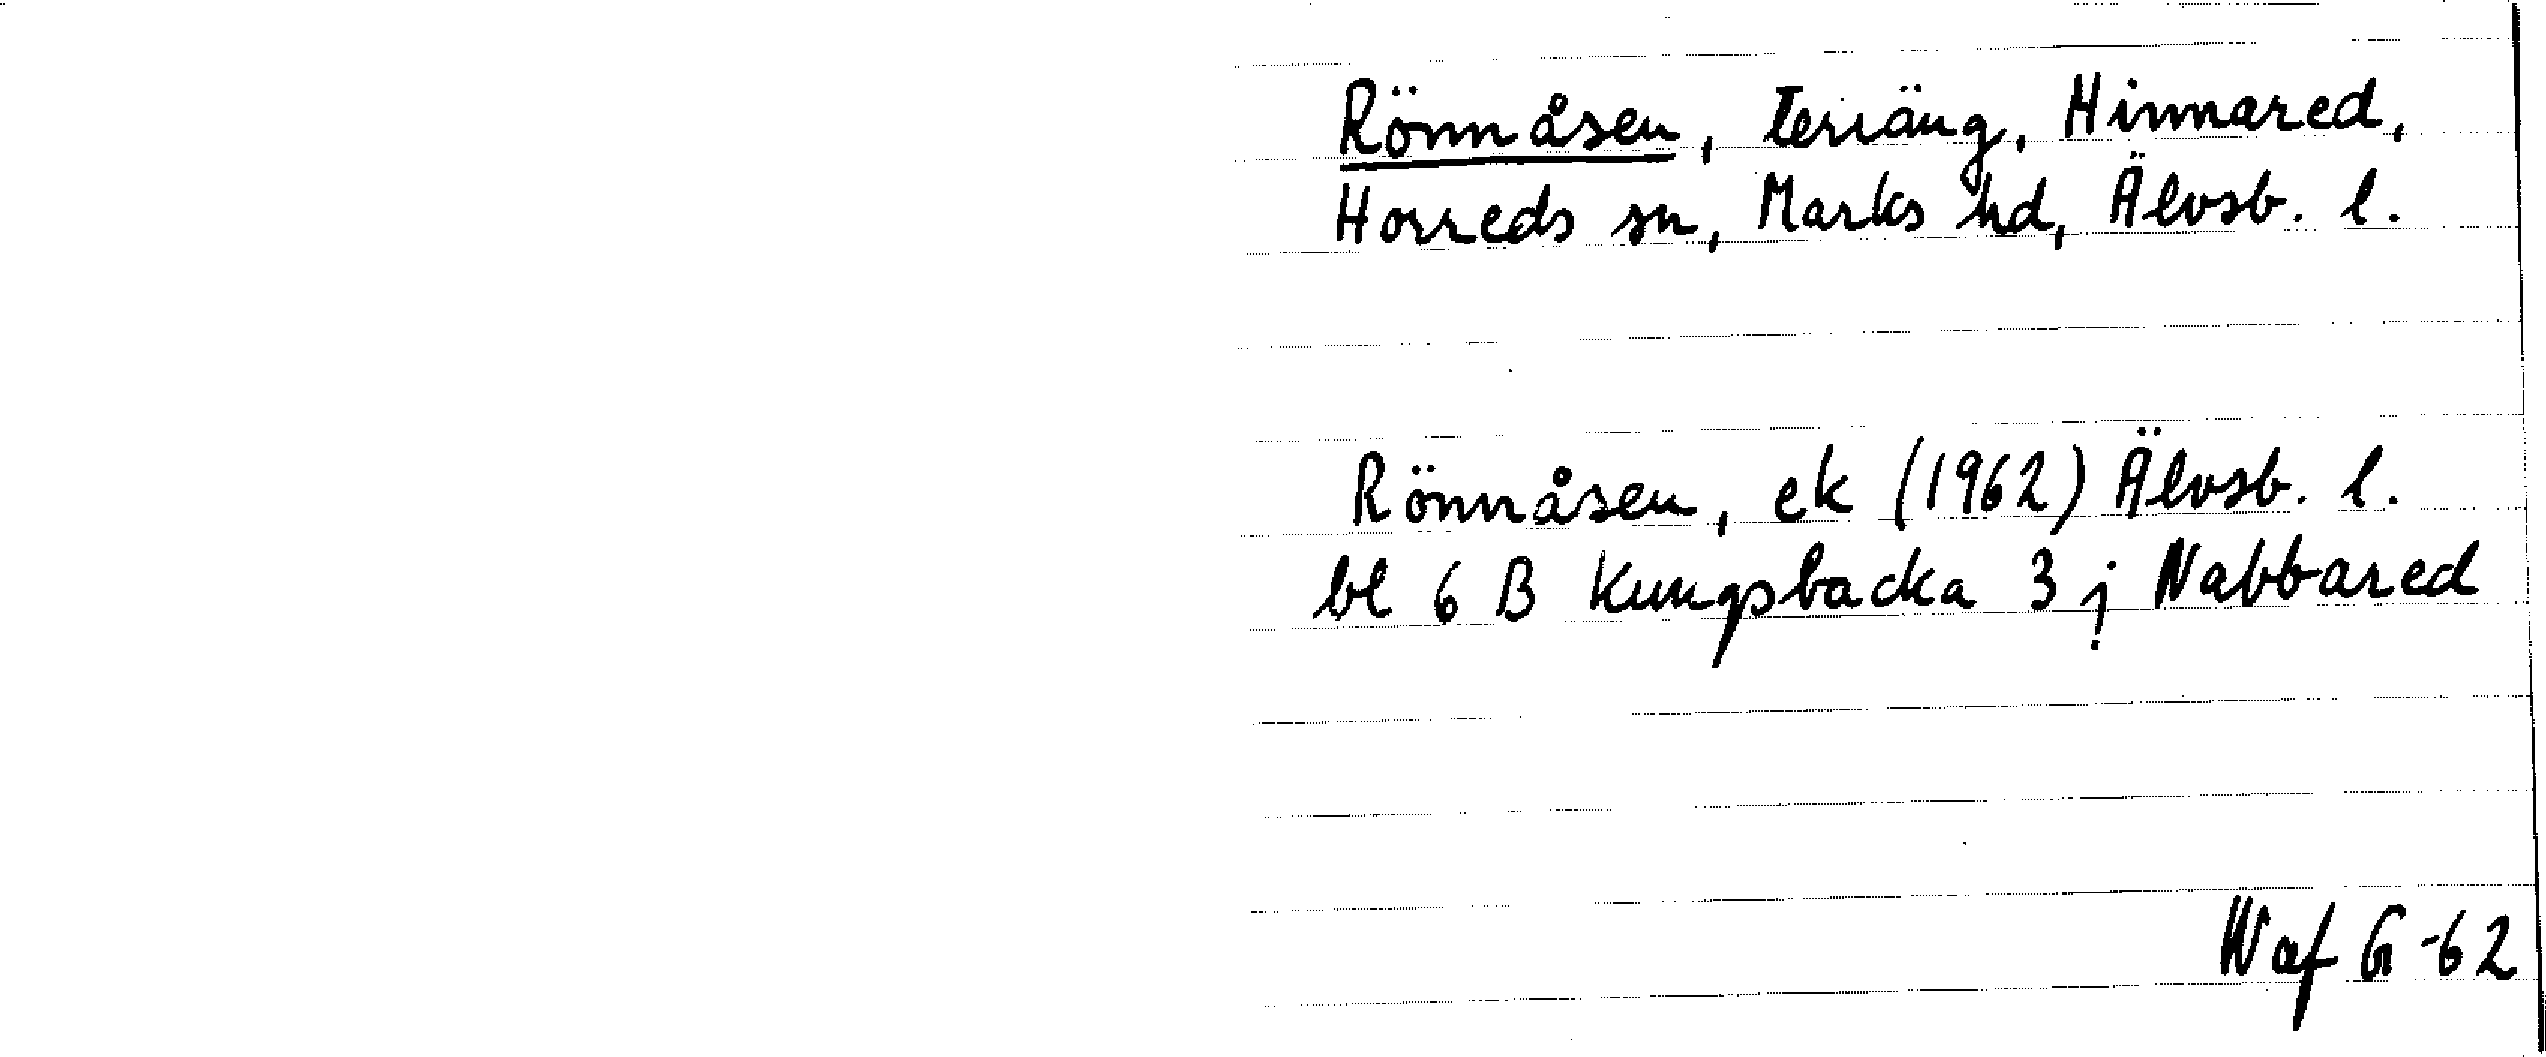 Rönnåsen, terräng, Hinnared,
Horreds sn, Marks hd, Älvsb. l.
Rönnåsen, ek (1962) Älvsb. l.
bl 6 B Kungsbacka 3 j Nabbared
Waf G -62